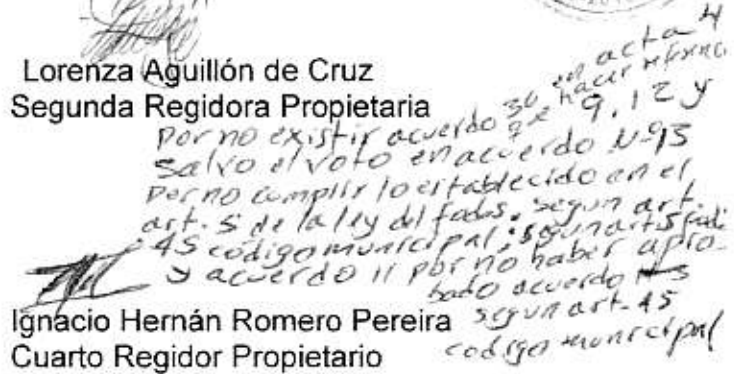 Lorenza Aguillón de Cruz
Segunda Regidora Propietaria
por no existir acuerdo 36 en acta 4
que hacer referenci
salvo el voto en acuerdo Nº 13 9, 12 y
por no cumplir lo establecido en el
art. 5 de la ley del fodes, segun art.
45 codigo municipal; segun art 5 fodes
y acuerdo 11 por no haber apro-
bado acuerdo 3
segun art. 45
codigo municipal
Ignacio Hernán Romero Pereira
Cuarto Regidor Propietario